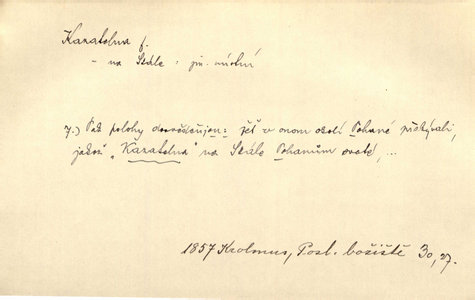 Kazatelna f.
- na Skále : jm. místní
7.) Též polohy dosvědčujou: žeť v onom okolí Pohané přebývali,
jakož „Kazatelna" na Skále Pohanům svaté, ...
1857 Krolmus, Posl. božiště 30, 27.